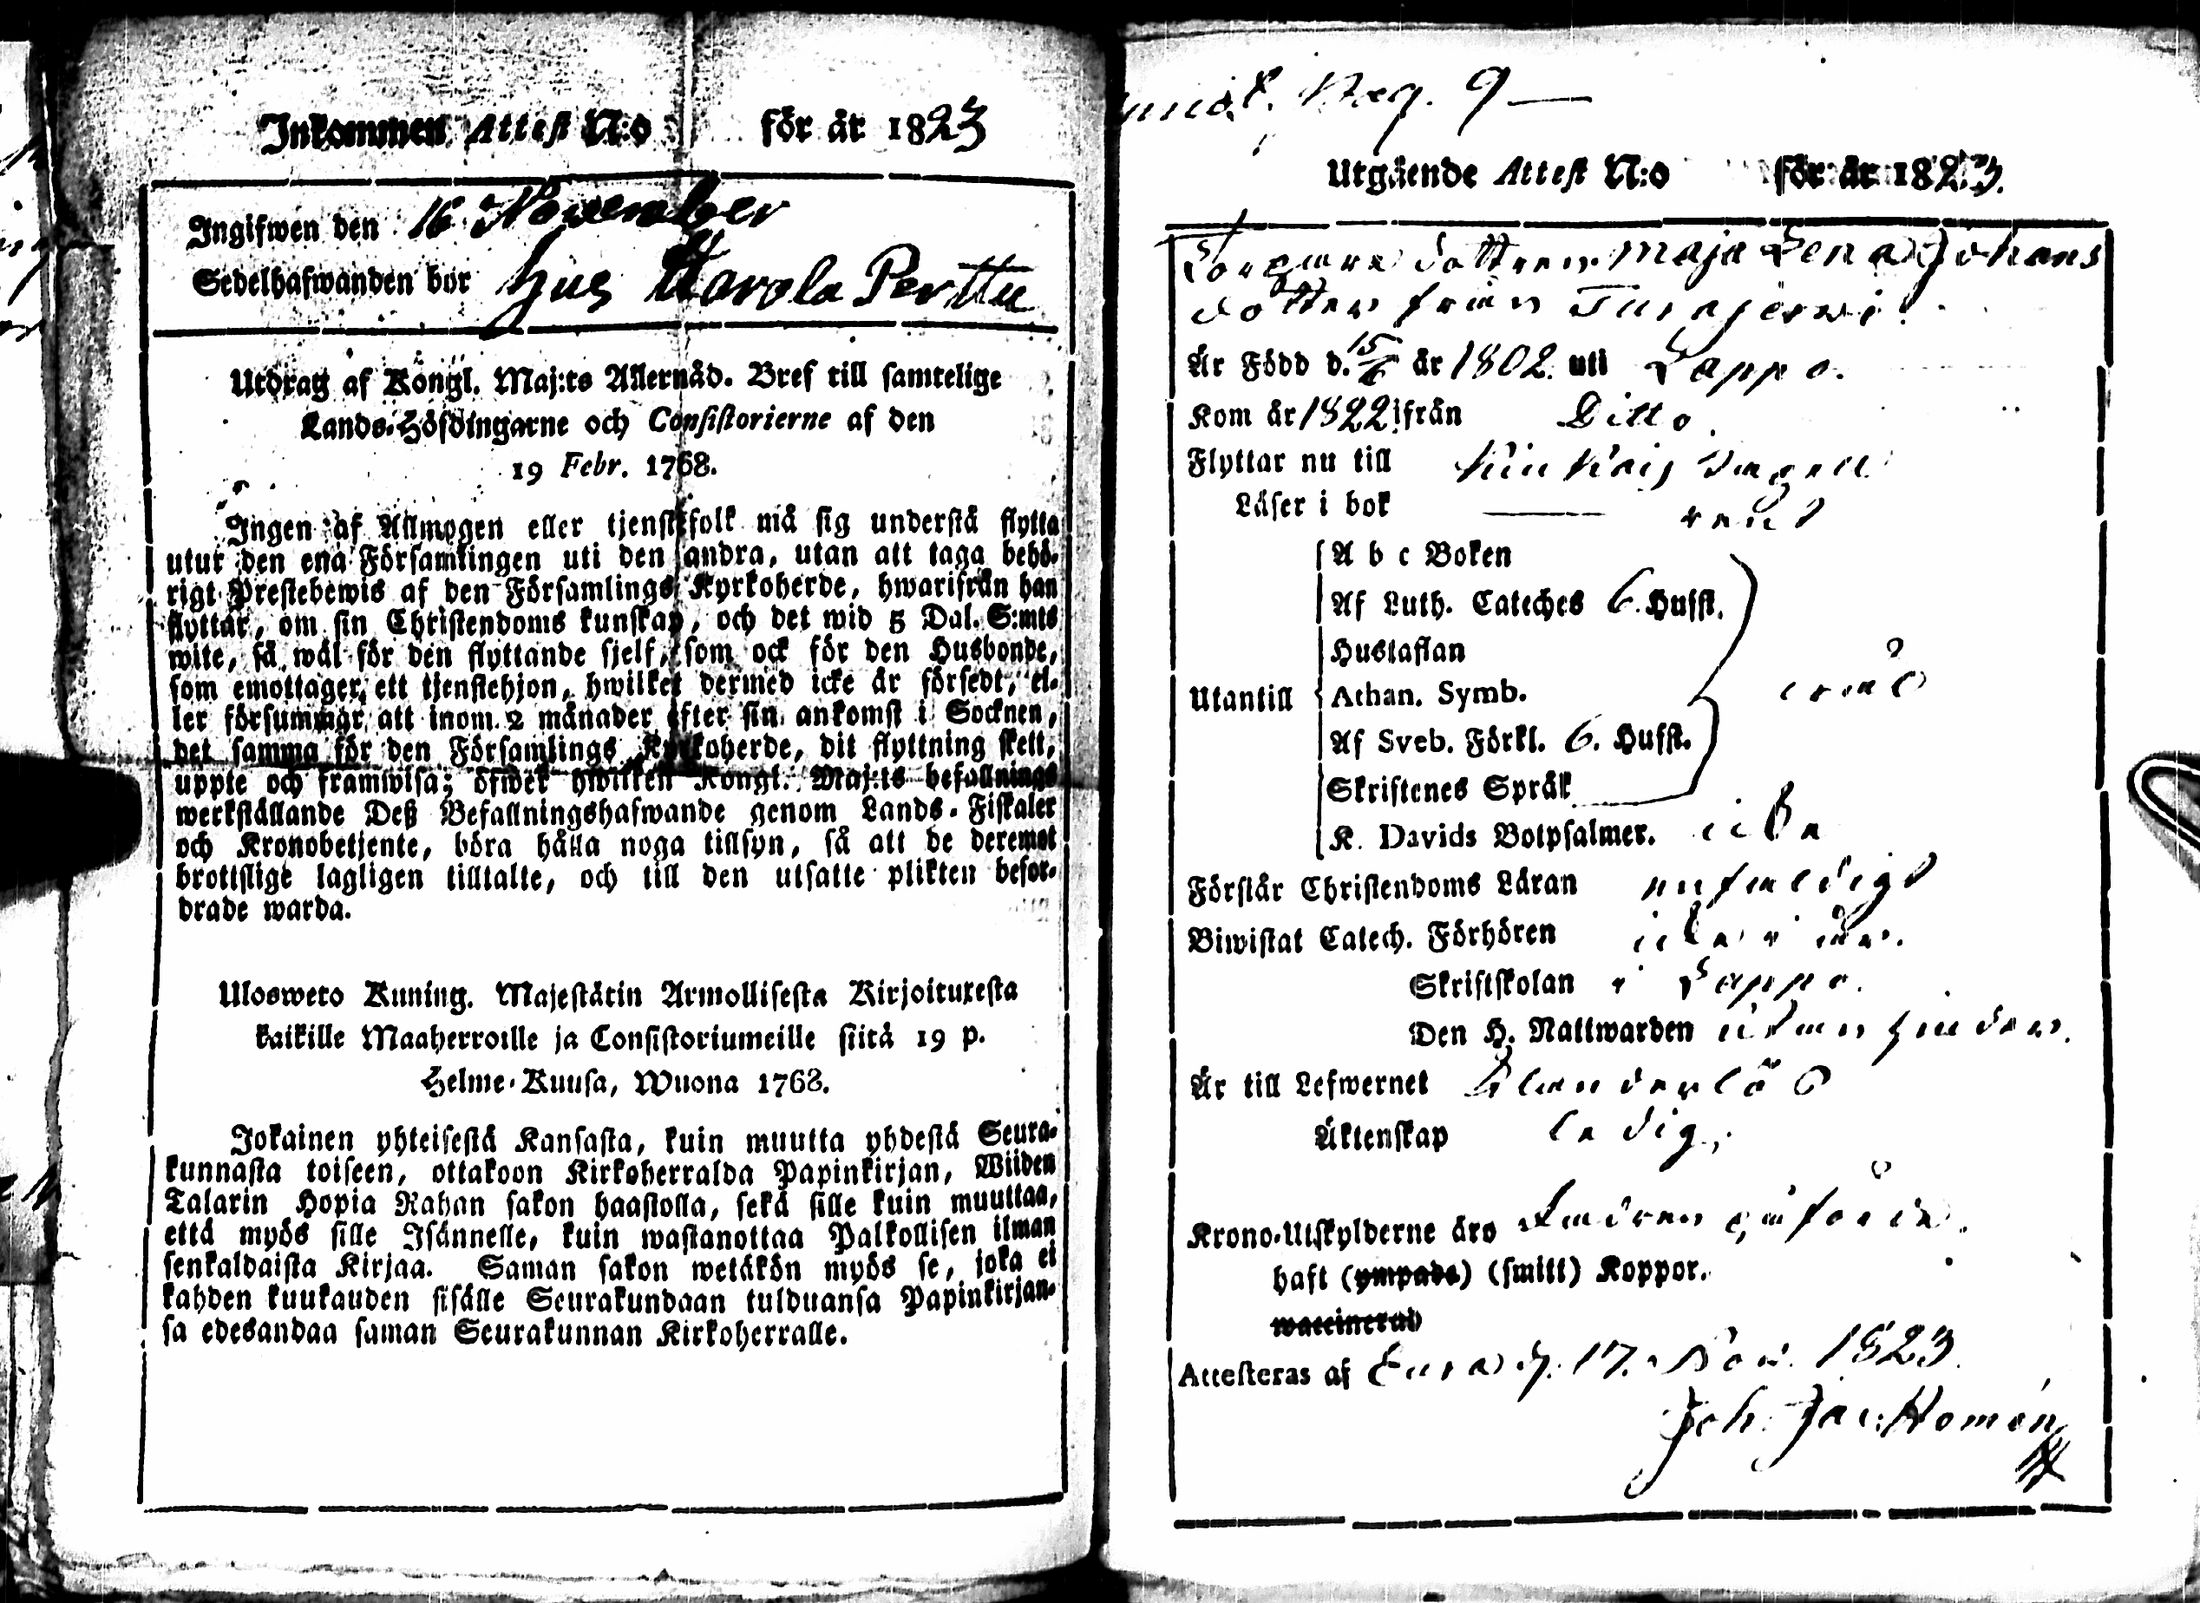 Inkommen Attest N:o för år 1823
Ingifwen den 16 November
Sedelhafwanden bor hus Karola Perttu
Utdrag af Kongl. Maj:ts Allernåd. Bref till samtelige
Lands-Höfdingarne och Consistorierne af den
19 Febr. 1768.
Ingen af Allmogen eller tjenstefolk må sig understå flytta
utur den ena Församlingen uti den andra, utan att taga behö-
rigt Prestebewis af den Församlings Kyrkoherde, hwarifrån han
flyttar, om sin Christendoms kunskap, och det wid 5 Dal. S:mts
wite, så wäl för den flyttande sjelf, som ock för den Husbonde,
som emottager ett tjenstehjon, hwilket dermed icke är försedt, el-
ler försummar att inom 2 månader efter sin ankomst i Socknen,
det samma för den Församlings Kyrkoherde, dit flyttning skett,
uppte och framwisa; öfwer hwilken Kongl. Maj:ts befallnings
werkställande Deß Befallningshafwande genom Lands-Fiskaler
och Kronobetjente, böra hålla noga tillsyn, så att de deremot
brottslige lagligen tilltalte, och till den utsatte plikten befor-
drade warda.
Ulosweto Kuning. Majestätin Armollisesta Kirjoituxesta
kaikille Maaherroille ja Consistoriumeille siitä 19 p.
Helme-Kuusa, Wuona 1768.
Jokainen yhteisestä Kansasta, kuin muutta yhdestä Seura-
kunnasta toiseen, ottakoon Kirkoherralda Papinkirjan, Wiiden
Talarin Hopia Rahan sakon haastolla, sekä sille kuin muuttaa,
että myös sille Isännelle, kuin wastanottaa Palkollisen ilman
senkaldaista Kirjaa. Saman sakon wetäkön myös se, joka ei
kahden kuukauden sisälle Seurakundaan tulduansa Papinkirjan-
sa edesandaa saman Seurakunnan Kirkoherralle.
Pag. 9
Utgående Attest N:o för år 1823.
Torpare dottren Maja Lena Johans
dotter från Turajerwi.
Är Född d. 15/6 år 1802. uti Lappo.
Kom år 1822 ifrån Ditto.
Flyttar nu till
Läser i bok rent
A b c Boken
Af Luth. Cateches 6. Hufst.
Hustaflan
Utantill Athan. Symb.
Af Sveb. Förkl. 6. Hufst.
Skriftenes Språk
K. Davids Botpsalmer. icke
Förstår Christendoms Läran enfaldigt
Biwistat Catech. Förhören icke i år.
Skriftskolan i Lappo.
Den H. Nattwarden
Är till Lefwernet klanderlös
Äktenskap ledig.
Krono-Utskylderne äro
haft (ympade) (smitt) Koppor.
waccinerad
Attesteras af Eura d. 17. Nov. 1823.
Joh. Jac: Homén